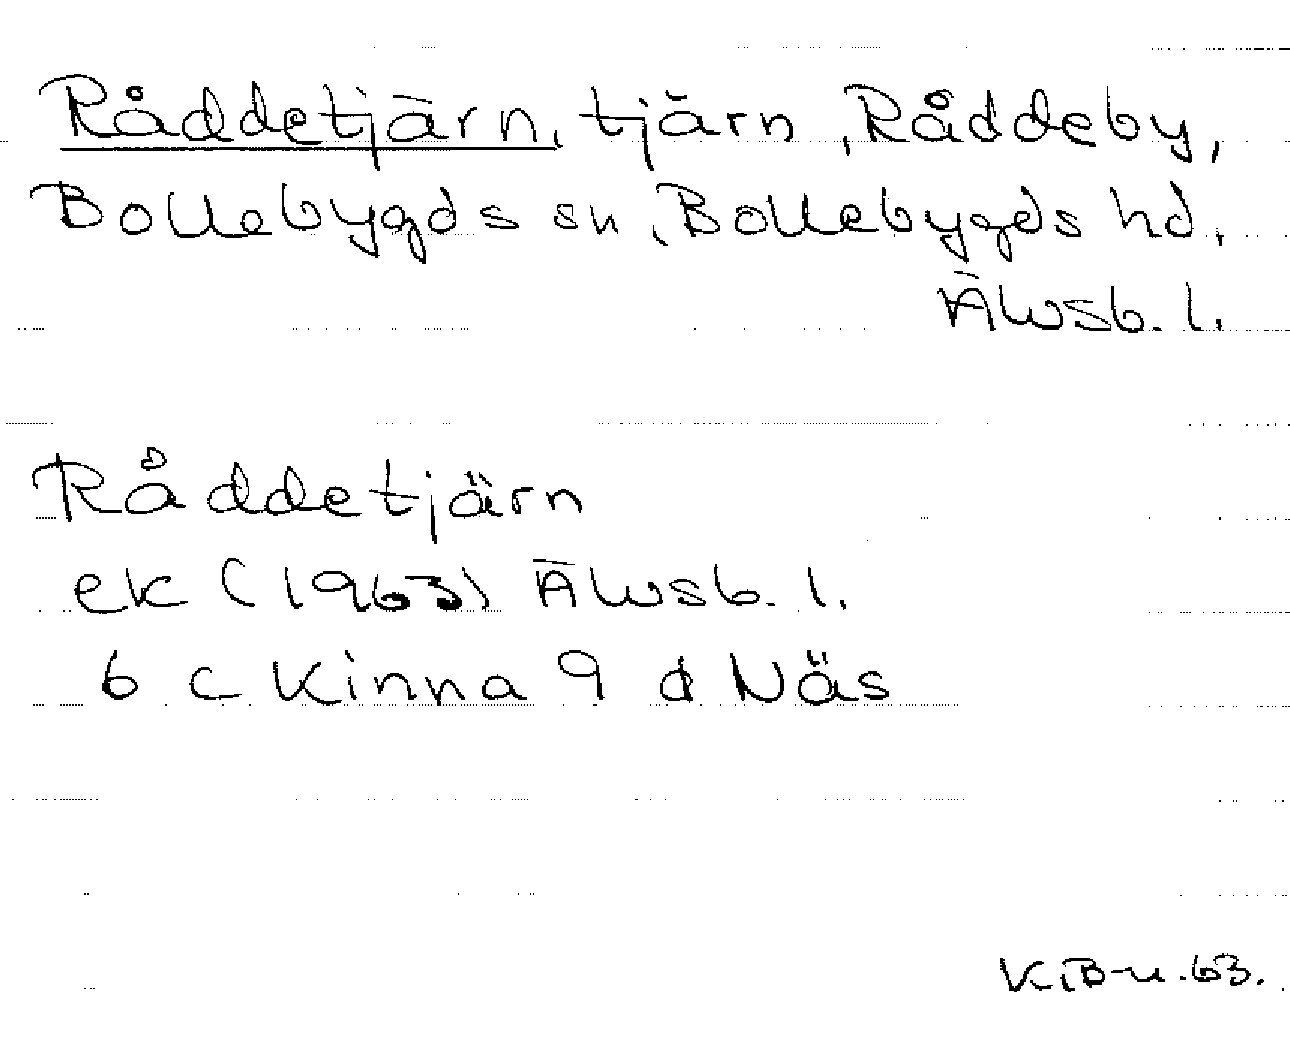 Råddetjärn, tjärn, Råddeby,
Bollebygds sn, Bollebygds hd,
Älvsb. l.
Råddetjärn
ek (1963) Älvsb. l.
6 c Kinna 9 d Näs